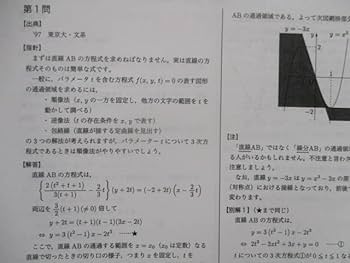 第1問
【出典】
'97 東京大・文系
【指針】
まずは直線 AB の方程式を求めねばなりません。実は直線の方
程式そのものは簡単な式です。
一般に、パラメータ t を含む方程式 f(x, y, t) = 0 の表す図形
の通過領域を求めるには,
・順像法 (x, y の一方を固定し, 他方の文字の範囲を t を
動かして調べる)
・逆像法 (t の存在条件を x, y で表す)
・包絡線 (直線が接する定曲線を見出す)
の3つの解法が考えられますが, パラメーター t について3次方
程式であるときは順像法がやりやすいでしょう。
【解答】
直線 AB の方程式は,
{ 2(t²+t+1)/3(t+1) − 2/3 t } (y+2t) = (−2+2t) (x − 2/3 t)
両辺を 3/2 (t+1) (≠0) 倍して
y+2t = (t+1)(t−1)(3x−2t)
⇔ y = 3(t²−1)x − 2t³ ⋯★
ここで, 直線 AB の通過する範囲を x = x₀ (x₀ は定数) なる
直線で切ったときの切り口の様子, つまり x を固定し, t を
AB の通過領域である。よって次図網掛部
y = −3x
y
−2
2
−2
【注】
「直線AB」ではなく「線分AB の通過
る人がいるかもしれません。不注意と言わ
注意しましょう。
なお, 直線 y = −3x は y = x³ − 3x の原
(対称点) における接線となっており, 前
て接しています。
【別解1】(★まで同じ)
y = 3(t²−1)x − 2t³
⇔ 2t³ − 3xt² + 3x + y = 0 ⋯①
の t についての3次方程式①が 0 ≤ t ≤ 1 な